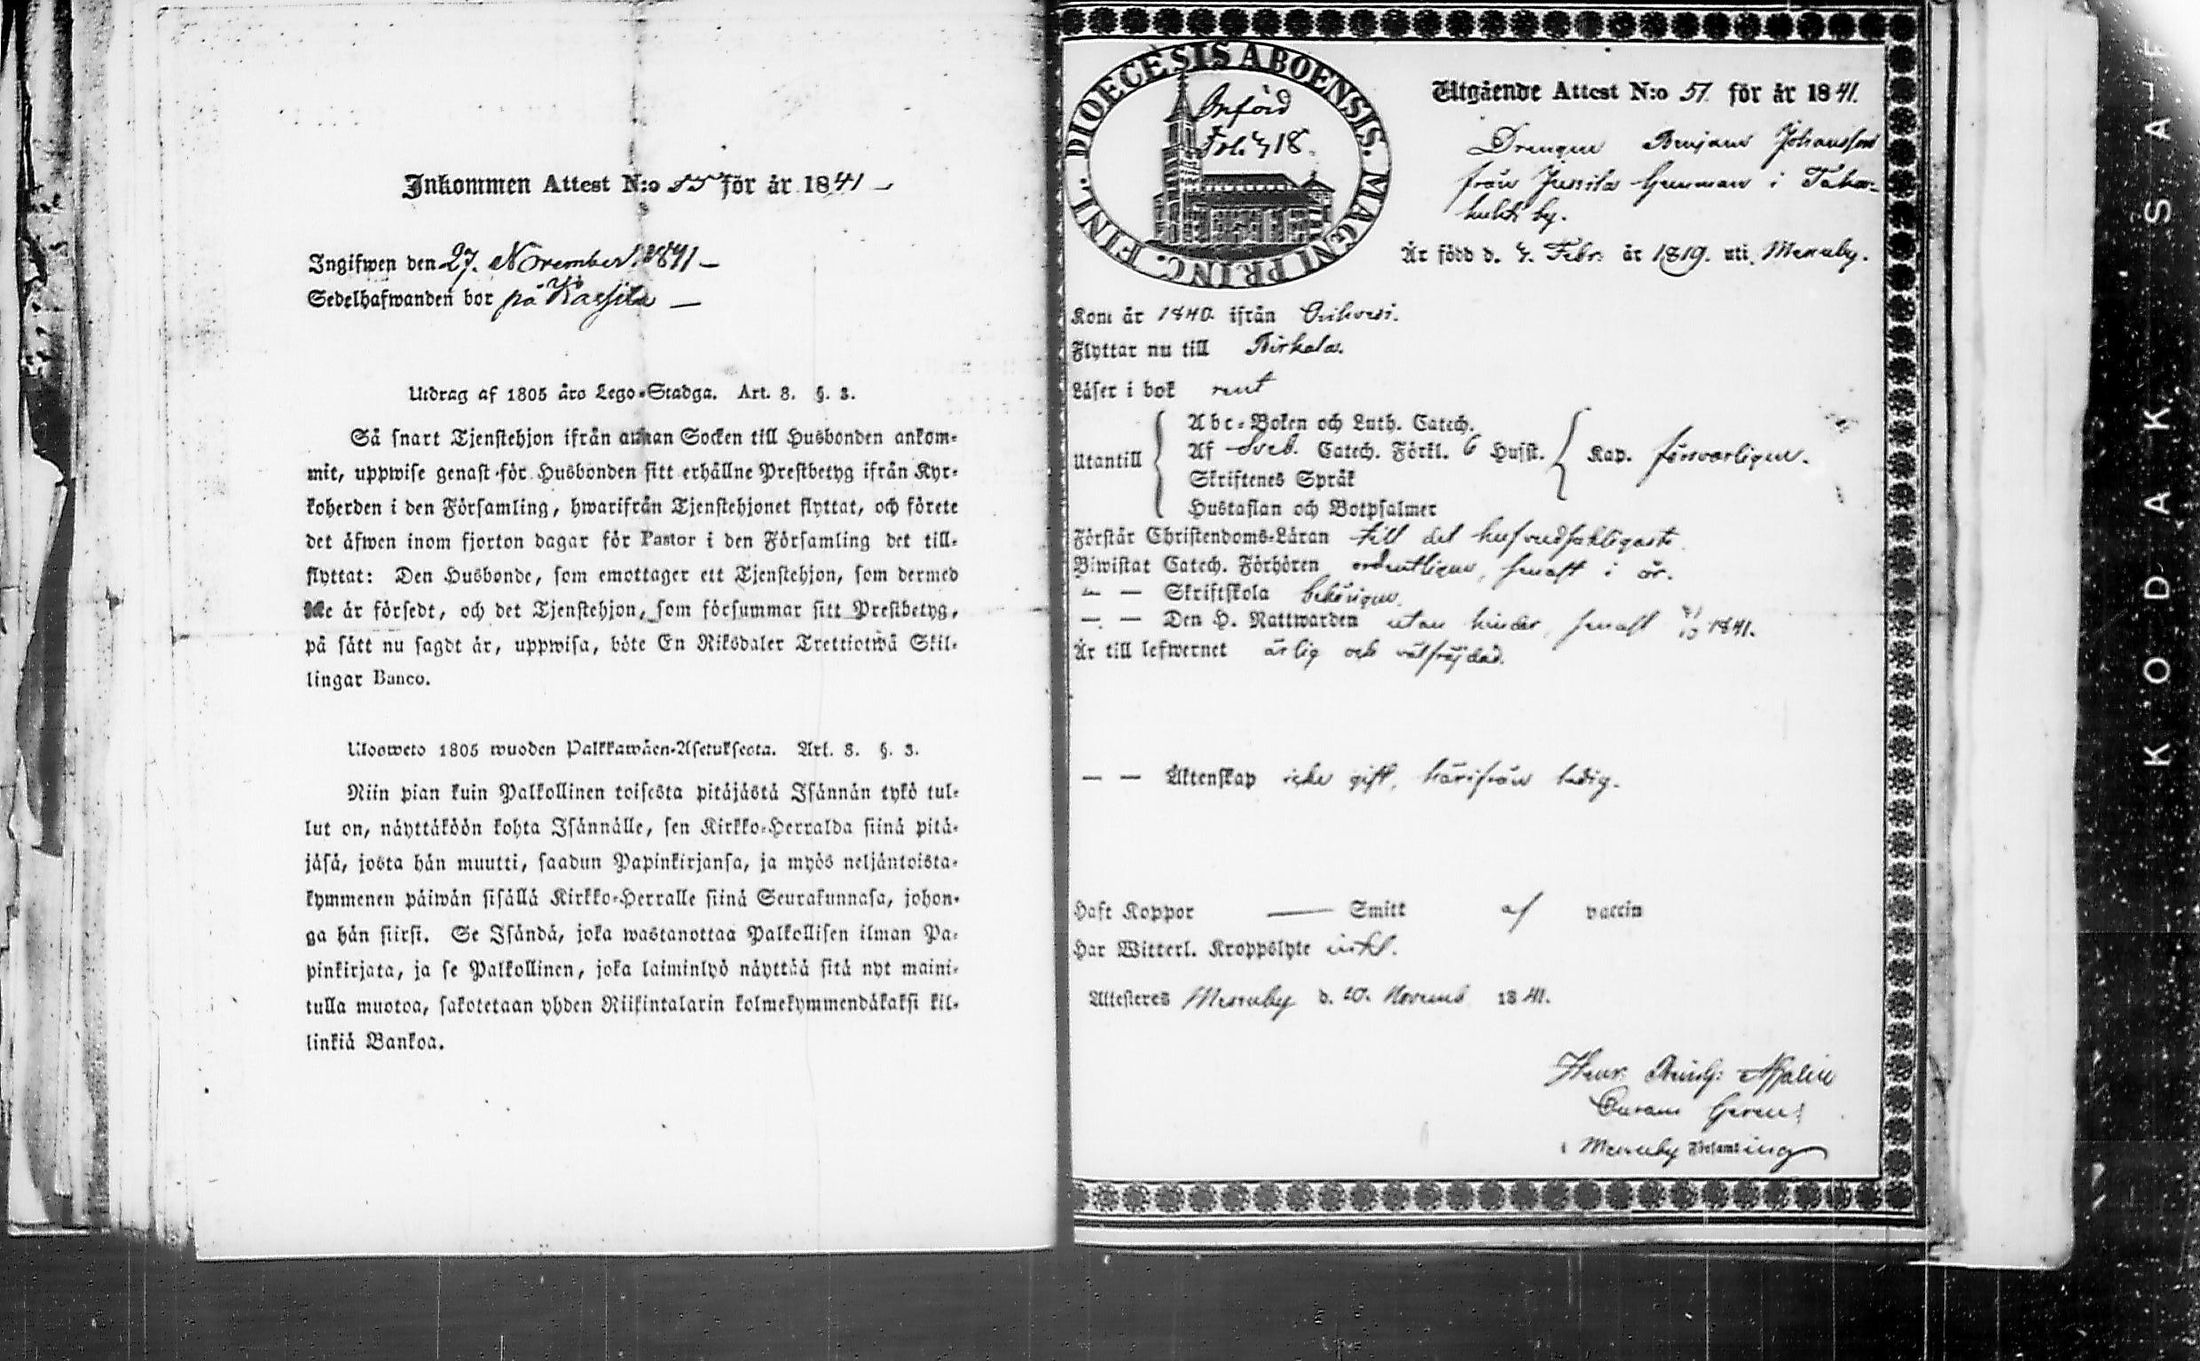 Inkommen Attest N:o 55 för år 1841
Ingifwen den 27. November 1841
Sedelhafwanden bor på
Utdrag af 1805 års Lego-Stadga. Art. 8. §. 3.
Så snart Tjenstehjon ifrån annan Socken till Husbonden ankom-
mit, uppwise genast för Husbonden sitt erhållne Prestbetyg ifrån Kyr-
koherden i den Församling, hwarifrån Tjenstehjonet flyttat, och förete
det åfwen inom fjorton dagar för Pastor i den Församling det till-
flyttat: Den Husbonde, som emottager ett Tjenstehjon, som dermed
icke är försedt, och det Tjenstehjon, som försummar sitt Prestbetyg,
på sätt nu sagdt är, uppwisa, böte En Riksdaler Trettiotwå Skil-
lingar Banco.
Ulosweto 1805 wuoden Palkkawäen-Asetuksesta. Art. 8. §. 3.
Niin pian kuin Palkollinen toisesta pitäjästä Isännän tykö tul-
lut on, näyttäköön kohta Isännälle, sen Kirkko-Herralda siinä pitä-
jäsä, josta hän muutti, saadun Papinkirjansa, ja myös neljäntoista-
kymmenen päiwän sisällä Kirkko-Herralle siinä Seurakunnasa, johon-
ga hän siirsi. Se Isändä, joka wastanottaa Palkollisen ilman Pa-
pinkirjata, ja se Palkollinen, joka laiminlyö näyttää sitä nyt maini-
tulla muotoa, sakotetaan yhden Riikintalarin kolmekymmendäkaksi kil-
linkiä Bankoa.
DIOECESIS ABOENSIS. MAGNI PRINC. FINL.
Införd
Utgående Attest N:o 57 för år 1841.
Drengen Benjam Johansson
från Jussila Gumman i
by.
Är född d. 4. Febr. år 1819. uti Messuby.
Kom år 1840 ifrån Orihvesi.
Flyttar nu till Birkala.
Läser i bok rent
Utantill
Abc-Boken och Luth. Catech.
Af Sveb. Catech. Förkl. 6 Hufst.
Skriftenes Språk
Hustaflan och Botpsalmer
Kap. försvarligen.
Förstår Christendoms-Läran till det hufvudsakligaste
Biwistat Catech. Förhören ordentligen, senast i år.
— — Skriftskola behörigen
— — Den H. Nattwarden utan hinder, senast 1841.
Är till lefwernet ärlig och välfrejdad.
— — Äktenskap icke gift, härifrån ledig.
Haft Koppor — Smitt af vaccin
Har Witterl. Kroppslyte intet.
Attesteres Messuby d. 20. Novemb 1841.
Henr.
Curam Gerens
i Messuby Församling
KODAK SAFE